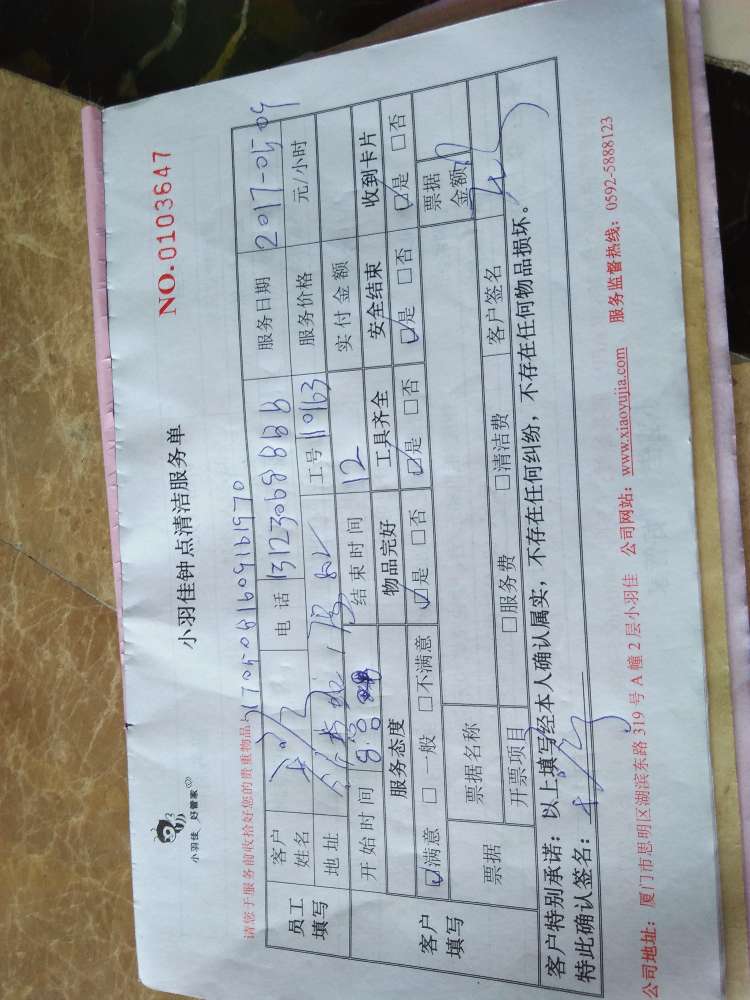 小羽佳 好管家
小羽佳钟点清洁服务单
NO.0103647
请您于服务前收拾好您的贵重物品
员工填写 客户姓名 电话 服务日期 2017-05-09
地址 工号 11063 服务价格 元/小时
开始时间 结束时间 12 实付金额
客户填写 服务态度 物品完好 工具齐全 安全结束 收到卡片
☑满意 □一般 □不满意 ☑是 □否 ☑是 □否 ☑是 □否 ☑是 □否
票据 票据名称 票据金额
开票项目 □服务费 □清洁费 客户签名
客户特别承诺：以上填写经本人确认属实，不存在任何纠纷，不存在任何物品损坏。
特此确认签名：
公司地址：厦门市思明区湖滨东路 319 号 A 幢 2 层小羽佳 公司网站：www.xiaoyujia.com 服务监督热线：0592-5888123